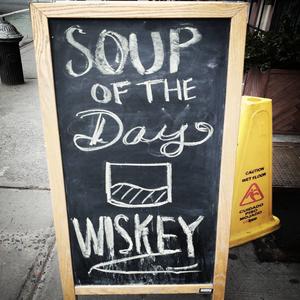 SOUP
OF THE
Day
WISKEY
CAUTION
WET FLOOR
CUIDADO
PISO
MOJADO